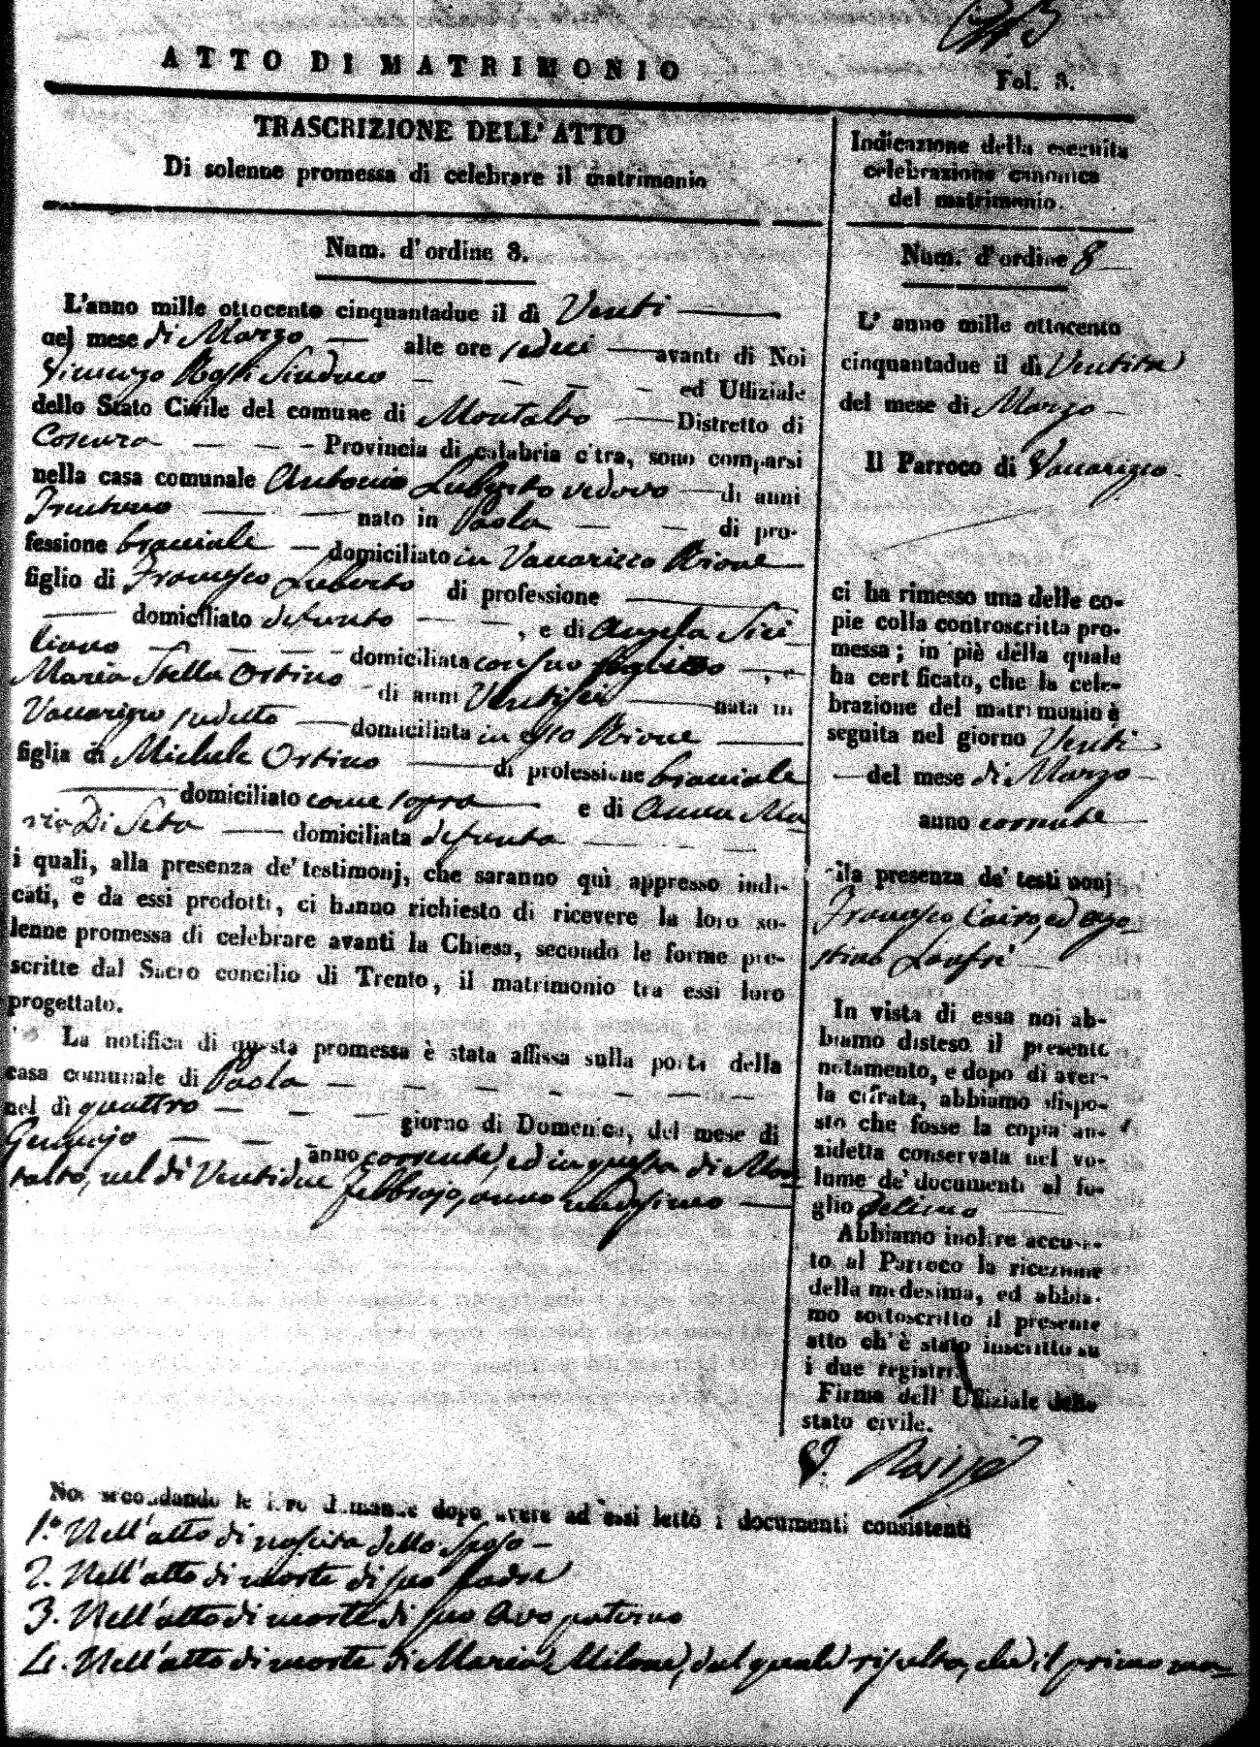 ATTO DI MATRIMONIO
Fol. 8.
TRASCRIZIONE DELL' ATTO
Di solenne promessa di celebrare il matrimonio
Num. d'ordine 8.
L'anno mille ottocento cinquantadue il dì Venti
nel mese di Marzo alle ore sedeci avanti di Noi
Vincenzo Sindaco ed Uffiziale
dello Stato Civile del comune di Montalto Distretto di
Cosenza Provincia di calabria citra, sono comparsi
nella casa comunale Antonio Luberto vedovo di anni
Trentuno nato in Paola di pro-
fessione bracciale domiciliato in Vaccarizzo Rione
figlio di Francesco Luberto di professione
domiciliato defunto , e di Angela Sici
liano domiciliata con suo figlio , e
Maria Stella Ortino di anni Ventisei nata in
Vaccarizzo sudetto domiciliata in esso Rione
figlia di Michele Ortino di professione bracciale
domiciliato come sopra e di Anna Ma
ria Di Seta domiciliata defunta
i quali, alla presenza de' testimonj, che saranno quì appresso indi-
cati, e da essi prodotti, ci hanno richiesto di ricevere la loro so-
lenne promessa di celebrare avanti la Chiesa, secondo le forme pre-
scritte dal Sacro concilio di Trento, il matrimonio tra essi loro
progettato.
La notifica di questa promessa è stata affissa sulla porta della
casa comunale di Paola
nel dì quattro giorno di Domenica, del mese di
Gennajo anno corrente, ed in questa di Mon
talto, nel dì Ventidue Febbrajo, anno medesimo
Indicazione della eseguita
celebrazione canonica
del matrimonio.
Num. d'ordine 8
L' anno mille ottocento
cinquantadue il dì Ventitre
del mese di Marzo
Il Parroco di Vaccarizzo
ci ha rimesso una delle co-
pie colla controscritta pro-
messa; in piè della quale
ha certificato, che la cele-
brazione del matrimonio è
seguita nel giorno Venti
del mese di Marzo
anno corrente
alla presenza de' testimonj
Francesco Cairo, ed Ago
stino Lanfri
In vista di essa noi ab-
biamo disteso il presente
notamento, e dopo di aver-
la cifrata, abbiamo dispo-
sto che fosse la copia an-
zidetta conservata nel vo-
lume de' documenti al fo-
glio Decimo
Abbiamo inoltre accusa-
to al Parroco la ricezione
della medesima, ed abbia-
mo sottoscritto il presente
atto ch'è stato inscritto su
i due registri.
Firma dell' Uffiziale dello
stato civile.
Noi secondando le loro dimande dopo avere ad essi letto i documenti consistenti
1.º Nell'atto di nascita dello Sposo
2. Nell'atto di morte di suo Padre
3. Nell'atto di morte di suo Avo paterno
4. Nell'atto di morte di Maria Milone, dal quale risulta, che il primo ma